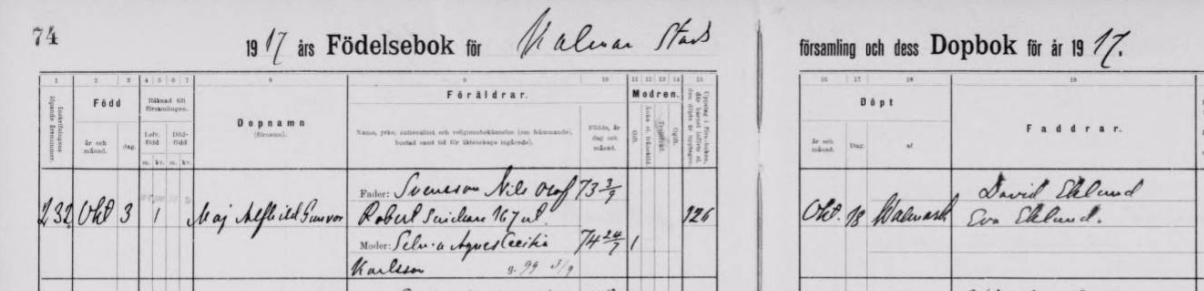 74
1917 års Födelsebok för Kalmar Stads
församling och dess Dopbok för år 1917.
1 2 3 4 5 6 7 8 9 10 11 12 13 14 15
16 17 18 19
Inskrifningens löpande årsnummer.
Född
år och månad.
dag.
Räknad till församlingen.
Lefv. född
Död-född
m. kv. m. kv.
Dopnamn
(förnamn).
Föräldrar.
Namn, yrke, nationalitet och religionsbekännelse (om främmande),
bostad samt tid för äktenskaps ingående).
Födde, år dag och månad.
Modren.
Gift.
Ogift.
Döpt
år och månad.
Dag.
af
Faddrar.
232 Okt 3 1 Maj Alfhild Gunvor
Fader: Svensson Nils Olof 73 3/9
Robert Snickare
Moder: Selma Agnes Cecilia 74 24/7 1
Karlsson g. 99 3/9
126
Okt. 18
David Eklund
Eva Eklund.